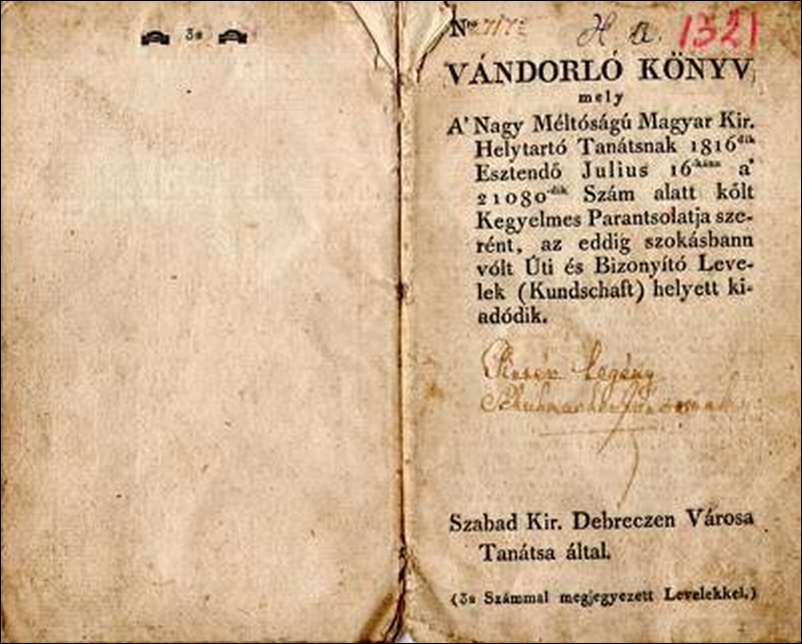 32
Nro 717
H a. 1321
VÁNDORLÓ KÖNYV,
mely
A' Nagy Méltóságú Magyar Kir.
Helytartó Tanátsnak 1816dik
Esztendő Julius 16-kánn a'
21080-dik Szám alatt költ
Kegyelmes Parantsolatja sze-
rént, az eddig szokásbann
vólt Úti és Bizonyító Leve-
lek (Kundschaft) helyett ki-
adódik.
Legény
Szabad Kir. Debreczen Városa
Tanátsa által.
(32 Számmal megjegyezett Levelekkel.)